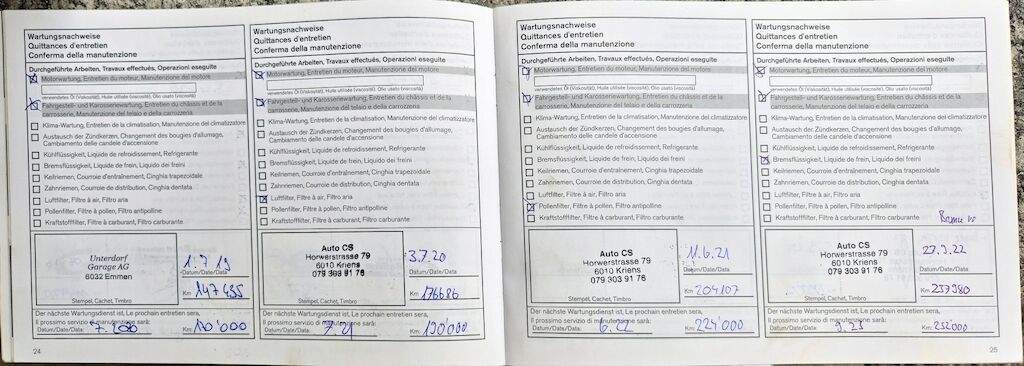 Wartungsnachweise
Quittances d'entretien
Conferma della manutenzione
Durchgeführte Arbeiten, Travaux effectués, Operazioni eseguite
Motorwartung, Entretien du moteur, Manutenzione del motore
verwendetes Öl (Viskosität), Huile utilisée (viscosité), Olio usato (viscosità)
Fahrgestell- und Karosseriewartung, Entretien du châssis et de la
carrosserie, Manutenzione del telaio e della carrozzeria
Klima-Wartung, Entretien de la climatisation, Manutenzione del climatizzatore
Austausch der Zündkerzen, Changement des bougies d'allumage,
Cambiamento delle candele d'accensione
Kühlflüssigkeit, Liquide de refroidissement, Refrigerante
Bremsflüssigkeit, Liquide de frein, Liquido dei freni
Keilriemen, Courroie d'entraînement, Cinghia trapezoidale
Zahnriemen, Courroie de distribution, Cinghia dentata
Luftfilter, Filtre à air, Filtro aria
Pollenfilter, Filtre à pollen, Filtro antipolline
Kraftstofffilter, Filtre à carburant, Filtro carburante
Unterdorf
Garage AG
6032 Emmen
1.7.19
Datum/Date/Data
Km 147435
Stempel, Cachet, Timbro
Der nächste Wartungsdienst ist, Le prochain entretien sera,
Il prossimo servizio di manutenzione sarà:
Datum/Date/Data:
Km:
24
Wartungsnachweise
Quittances d'entretien
Conferma della manutenzione
Durchgeführte Arbeiten, Travaux effectués, Operazioni eseguite
Motorwartung, Entretien du moteur, Manutenzione del motore
verwendetes Öl (Viskosität), Huile utilisée (viscosité), Olio usato (viscosità)
Fahrgestell- und Karosseriewartung, Entretien du châssis et de la
carrosserie, Manutenzione del telaio e della carrozzeria
Klima-Wartung, Entretien de la climatisation, Manutenzione del climatizzatore
Austausch der Zündkerzen, Changement des bougies d'allumage,
Cambiamento delle candele d'accensione
Kühlflüssigkeit, Liquide de refroidissement, Refrigerante
Bremsflüssigkeit, Liquide de frein, Liquido dei freni
Keilriemen, Courroie d'entraînement, Cinghia trapezoidale
Zahnriemen, Courroie de distribution, Cinghia dentata
Luftfilter, Filtre à air, Filtro aria
Pollenfilter, Filtre à pollen, Filtro antipolline
Kraftstofffilter, Filtre à carburant, Filtro carburante
Auto CS
Horwerstrasse 79
6010 Kriens
079 303 91 76
3.7.20
Datum/Date/Data
Km 176686
Stempel, Cachet, Timbro
Der nächste Wartungsdienst ist, Le prochain entretien sera,
Il prossimo servizio di manutenzione sarà:
Datum/Date/Data: 7.21
Km: 190'000
Wartungsnachweise
Quittances d'entretien
Conferma della manutenzione
Durchgeführte Arbeiten, Travaux effectués, Operazioni eseguite
Motorwartung, Entretien du moteur, Manutenzione del motore
verwendetes Öl (Viskosität), Huile utilisée (viscosité), Olio usato (viscosità)
Fahrgestell- und Karosseriewartung, Entretien du châssis et de la
carrosserie, Manutenzione del telaio e della carrozzeria
Klima-Wartung, Entretien de la climatisation, Manutenzione del climatizzatore
Austausch der Zündkerzen, Changement des bougies d'allumage,
Cambiamento delle candele d'accensione
Kühlflüssigkeit, Liquide de refroidissement, Refrigerante
Bremsflüssigkeit, Liquide de frein, Liquido dei freni
Keilriemen, Courroie d'entraînement, Cinghia trapezoidale
Zahnriemen, Courroie de distribution, Cinghia dentata
Luftfilter, Filtre à air, Filtro aria
Pollenfilter, Filtre à pollen, Filtro antipolline
Kraftstofffilter, Filtre à carburant, Filtro carburante
Auto CS
Horwerstrasse 79
6010 Kriens
079 303 91 76
11.6.21
Datum/Date/Data
Km 204107
Stempel, Cachet, Timbro
Der nächste Wartungsdienst ist, Le prochain entretien sera,
Il prossimo servizio di manutenzione sarà:
Datum/Date/Data: 6.22
Km: 224'000
Wartungsnachweise
Quittances d'entretien
Conferma della manutenzione
Durchgeführte Arbeiten, Travaux effectués, Operazioni eseguite
Motorwartung, Entretien du moteur, Manutenzione del motore
verwendetes Öl (Viskosität), Huile utilisée (viscosité), Olio usato (viscosità)
Fahrgestell- und Karosseriewartung, Entretien du châssis et de la
carrosserie, Manutenzione del telaio e della carrozzeria
Klima-Wartung, Entretien de la climatisation, Manutenzione del climatizzatore
Austausch der Zündkerzen, Changement des bougies d'allumage,
Cambiamento delle candele d'accensione
Kühlflüssigkeit, Liquide de refroidissement, Refrigerante
Bremsflüssigkeit, Liquide de frein, Liquido dei freni
Keilriemen, Courroie d'entraînement, Cinghia trapezoidale
Zahnriemen, Courroie de distribution, Cinghia dentata
Luftfilter, Filtre à air, Filtro aria
Pollenfilter, Filtre à pollen, Filtro antipolline
Kraftstofffilter, Filtre à carburant, Filtro carburante
Auto CS
Horwerstrasse 79
6010 Kriens
079 303 91 76
Datum/Date/Data
Km 237980
Stempel, Cachet, Timbro
Der nächste Wartungsdienst ist, Le prochain entretien sera,
Il prossimo servizio di manutenzione sarà:
Datum/Date/Data: 9.23
Km: 252000
25